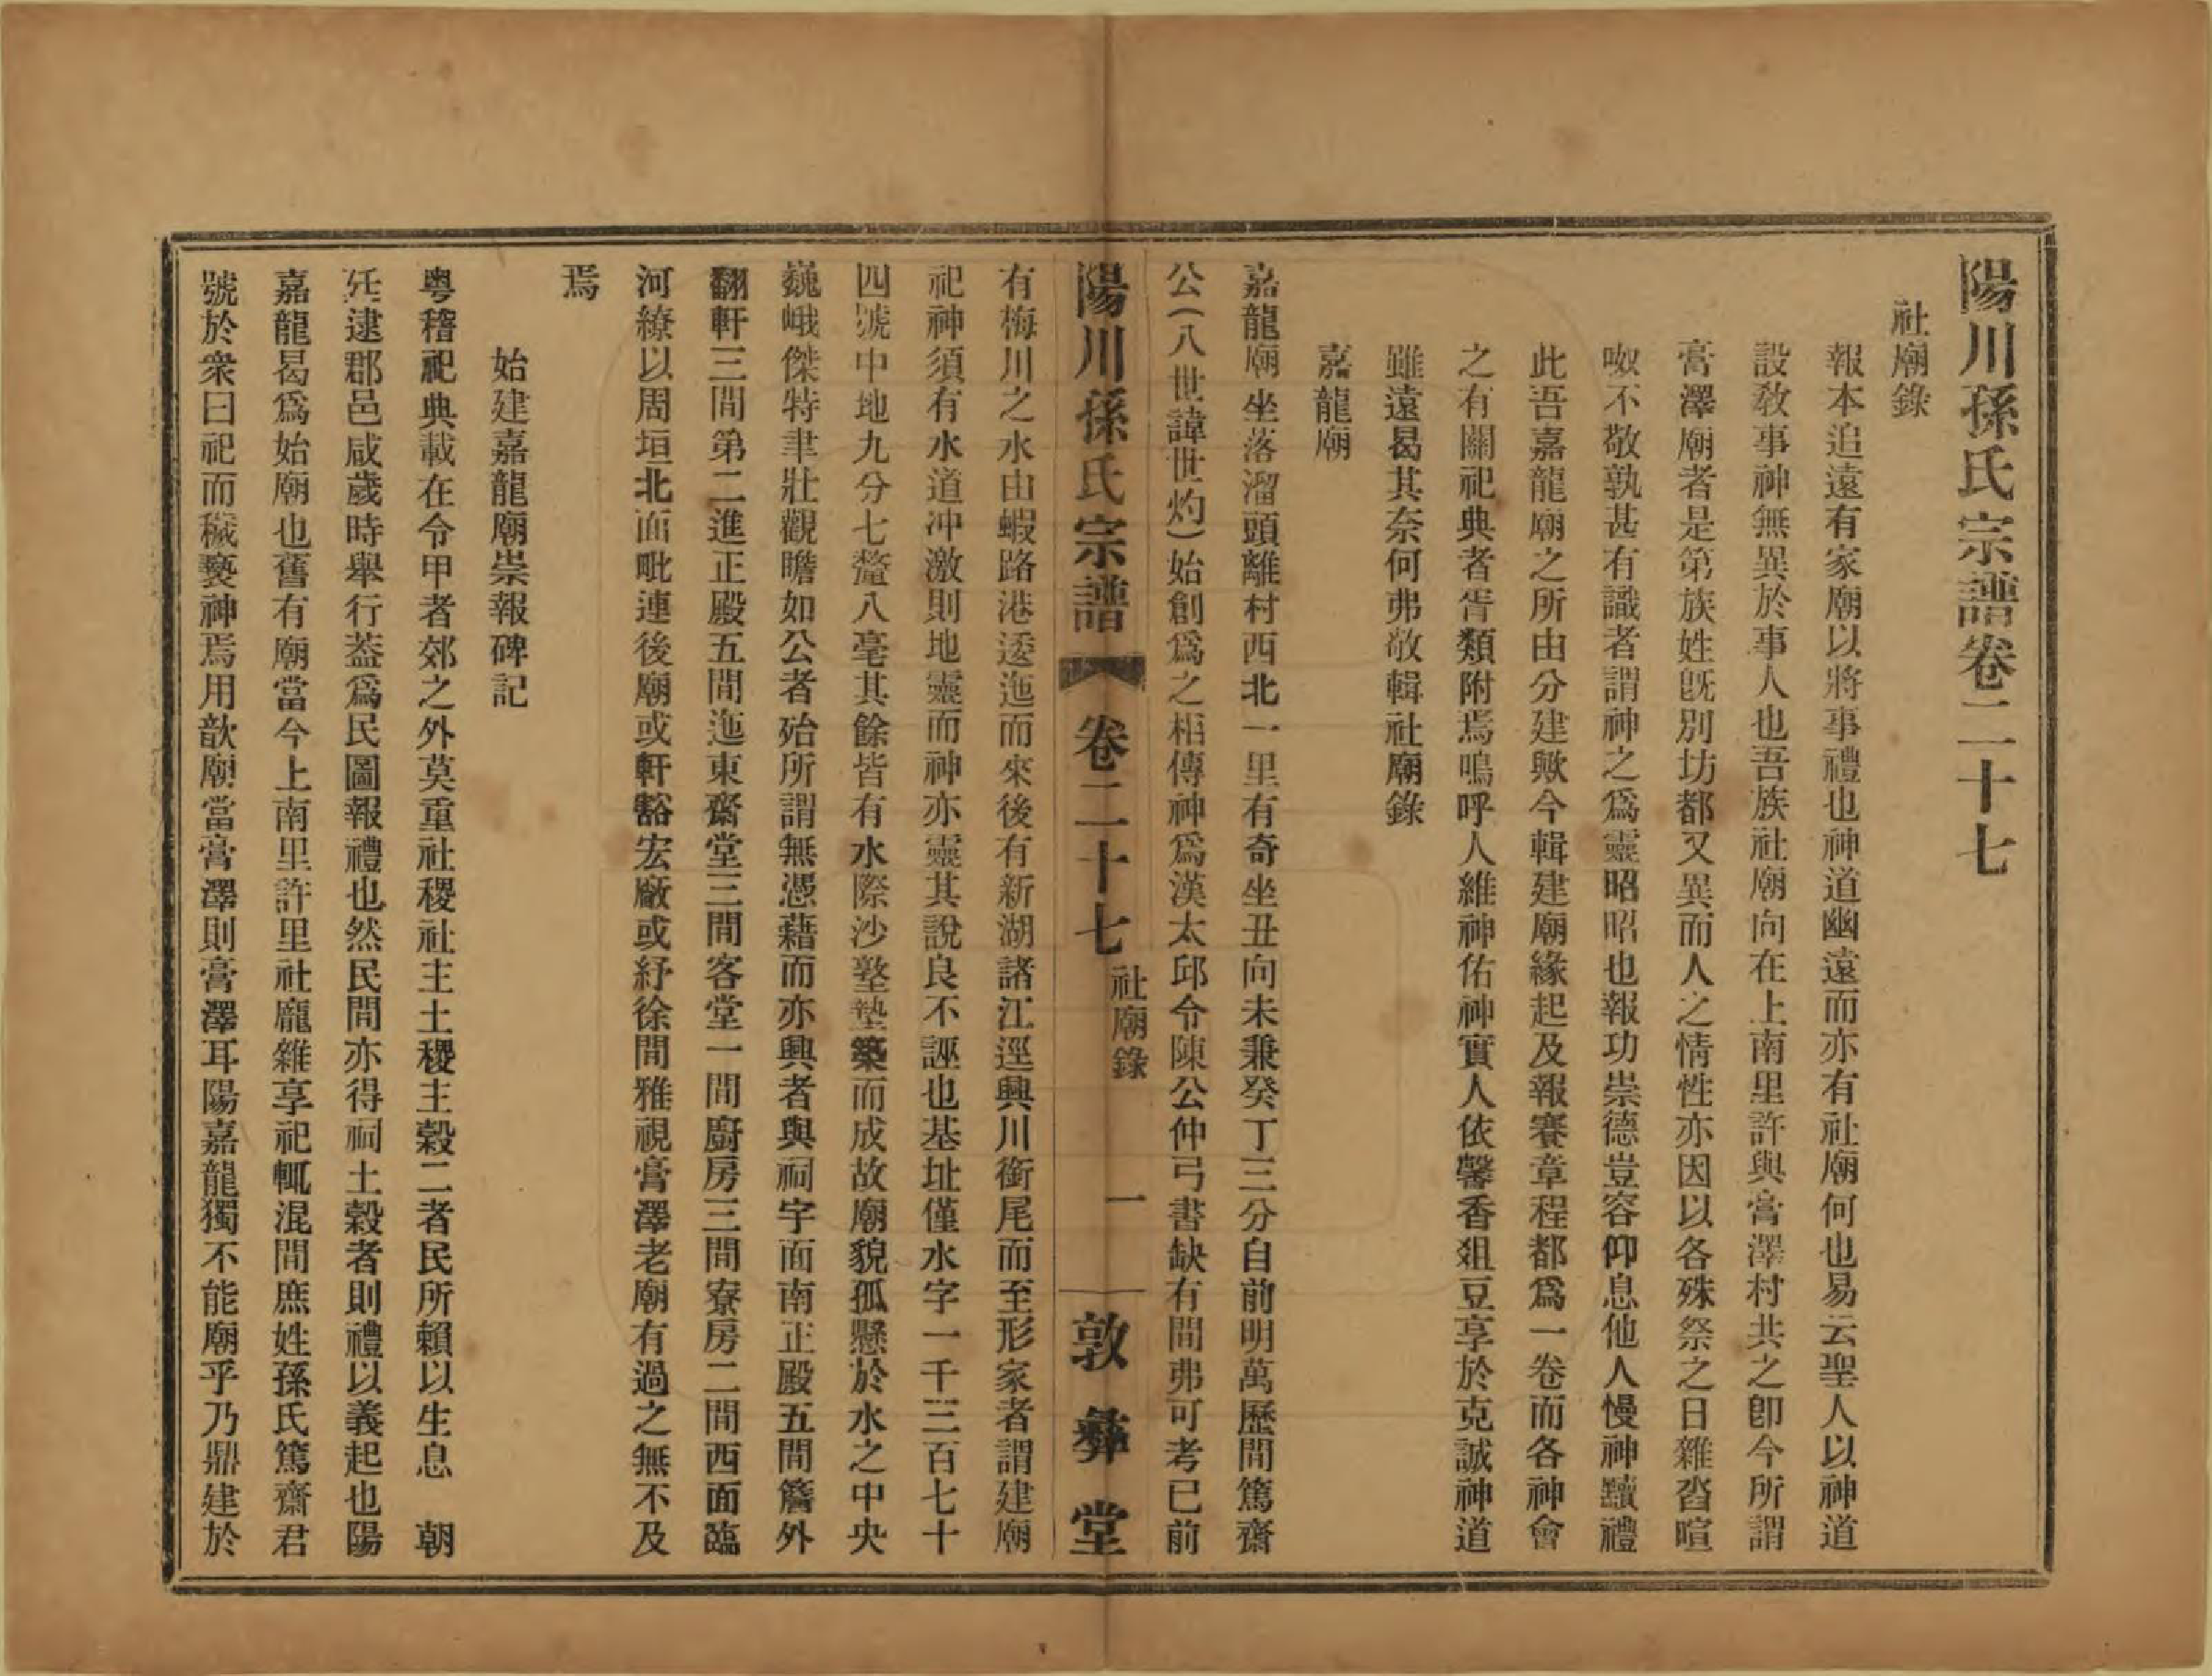 陽川孫氏宗譜卷二十七
社廟錄
報本追遠有家廟以將事禮也神道幽遠而亦有社廟何也易云聖人以神道
設教事神無異於事人也吾族社廟向在上南里許與膏澤村共之卽今所謂
膏澤廟者是第族姓旣別坊都又異而人之情性亦因以各殊祭之日雜沓喧
呶不敬孰甚有識者謂神之爲靈昭昭也報功崇德豈容仰息他人慢神黷禮
此吾嘉龍廟之所由分建歟今輯建廟緣起及報賽章程都爲一卷而各神會
之有關祀典者胥類附焉嗚呼人維神佑神實人依馨香俎豆享於克誠神道
雖遠曷其奈何弗敬輯社廟錄
嘉龍廟
嘉龍廟坐落溜頭離村西北一里有奇坐丑向未兼癸丁三分自前明萬歷間篤齋
公(八世諱世灼)始創爲之相傳神爲漢太邱令陳公仲弓書缺有間弗可考已前
陽川孫氏宗譜 卷二十七 社廟錄 一 敦彝堂
有梅川之水由蝦路港逶迤而來後有新湖諸江逕興川銜尾而至形家者謂建廟
祀神須有水道冲激則地靈而神亦靈其說良不誣也基址僅水字一千三百七十
四號中地九分七釐八毫其餘皆有水際沙墪墊築而成故廟貌孤懸於水之中央
巍峨傑特聿壯觀瞻如公者殆所謂無憑藉而亦興者與祠宇面南正殿五間簷外
翻軒三間第二進正殿五間迤東齋堂三間客堂一間廚房三間寮房二間西面臨
河繚以周垣北面毗連後廟或軒豁宏廠或紓徐閒雅視膏澤老廟有過之無不及
焉
始建嘉龍廟崇報碑記
粤稽祀典載在令甲者郊之外莫重社稷社主土稷主穀二者民所賴以生息 朝
廷逮郡邑咸歲時舉行葢爲民圖報禮也然民間亦得祠土穀者則禮以義起也陽
嘉龍曷爲始廟也舊有廟當今上南里許里社龐雜享祀輒混間庶姓孫氏篤齋君
號於衆曰祀而穢褻神焉用歆廟當膏澤則膏澤耳陽嘉龍獨不能廟乎乃鼎建於